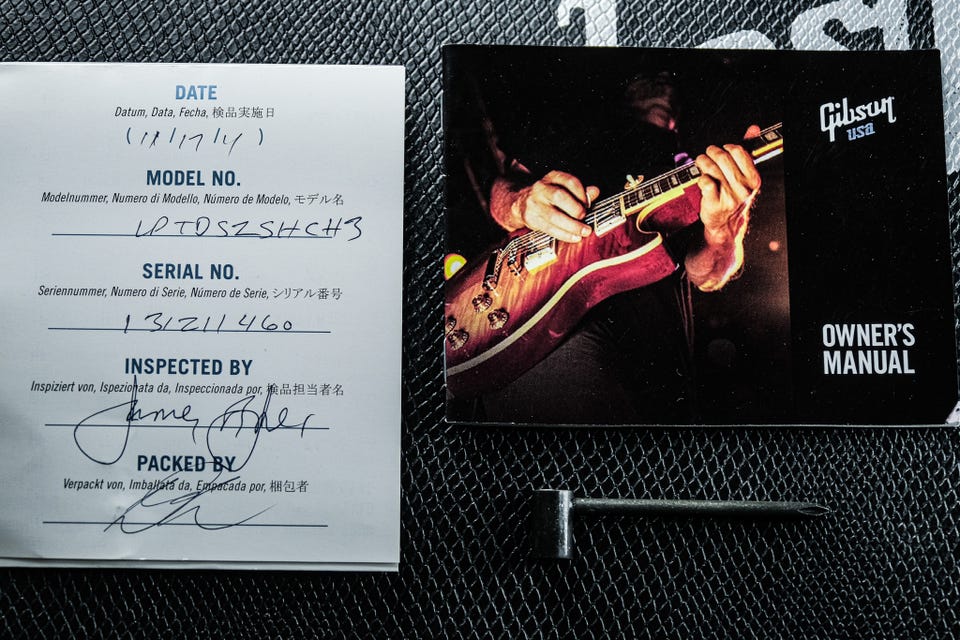 DATE
Datum, Data, Fecha, 検品実施日
MODEL NO.
Modelnummer, Numero di Modello, Número de Modelo, モデル名
LPTDSZSHCH3
SERIAL NO.
Seriennummer, Numero di Serie, Número de Serie, シリアル番号
131211460
INSPECTED BY
Inspiziert von, Ispezionata da, Inspeccionada por, 検品担当者名
PACKED BY
Verpackt von, Imballata da, Empacada por, 梱包者
Gibson
usa
OWNER'S
MANUAL